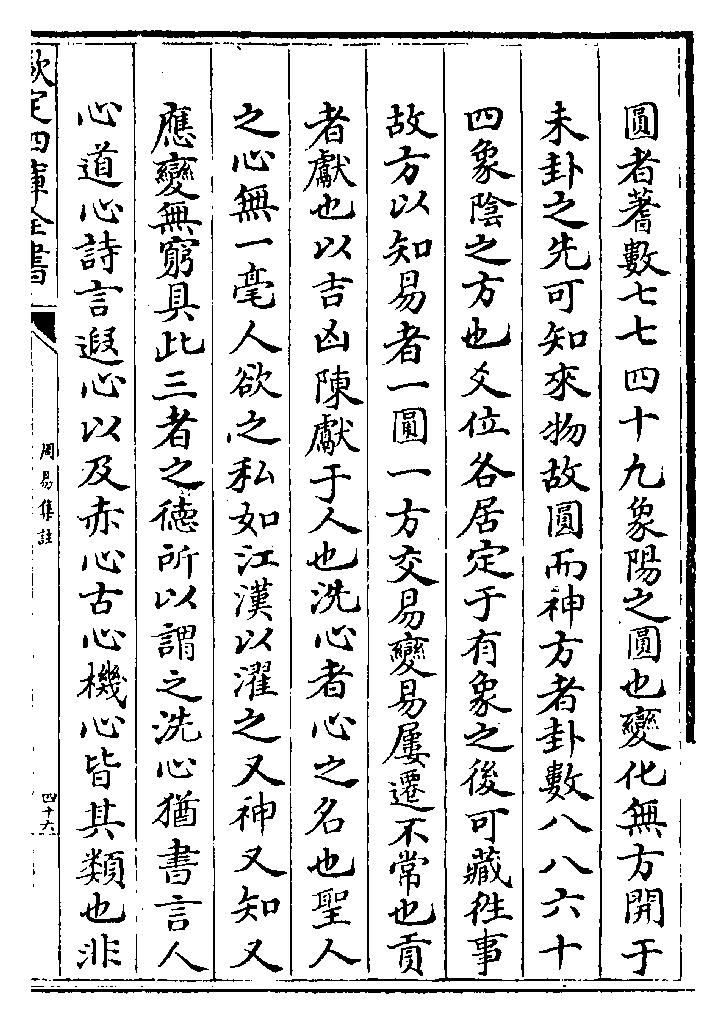 圓者蓍數七七四十九象陽之圓也變化無方開于
未卦之先可知來物故圓而神方者卦數八八六十
四象陰之方也爻位各居定于有象之後可藏徃事
故方以知易者一圓一方交易變易屢遷不常也貢
者獻也以吉凶陳獻于人也洗心者心之名也聖人
之心無一毫人欲之私如江漢以濯之又神又知又
應變無窮具此三者之德所以謂之洗心猶書言人
心道心詩言遐心以及赤心古心機心皆其類也非
欽定四庫全書
周易集註
四十六